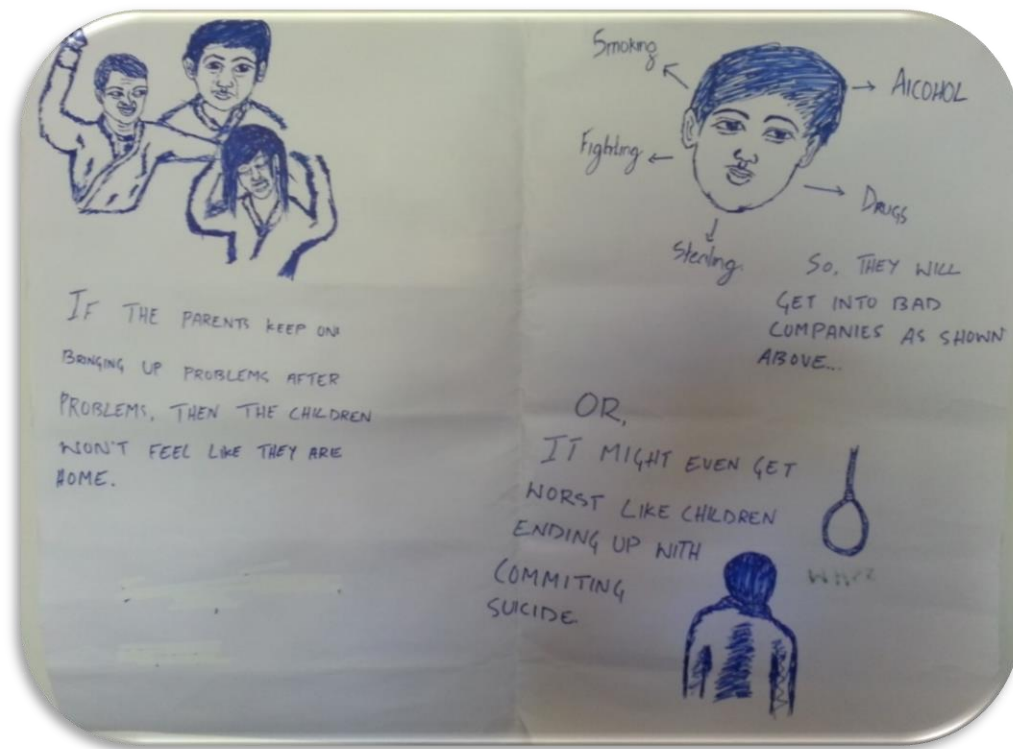 IF THE PARENTS KEEP ON
BRINGING UP PROBLEMS AFTER
PROBLEMS, THEN THE CHILDREN
WON'T FEEL LIKE THEY ARE
HOME.
Smoking
ALCOHOL
Fighting
DRUGS
Sterling
SO, THEY WILL
GET INTO BAD
COMPANIES AS SHOWN
ABOVE...
OR,
IT MIGHT EVEN GET
WORST LIKE CHILDREN
ENDING UP WITH
COMMITING
SUICIDE